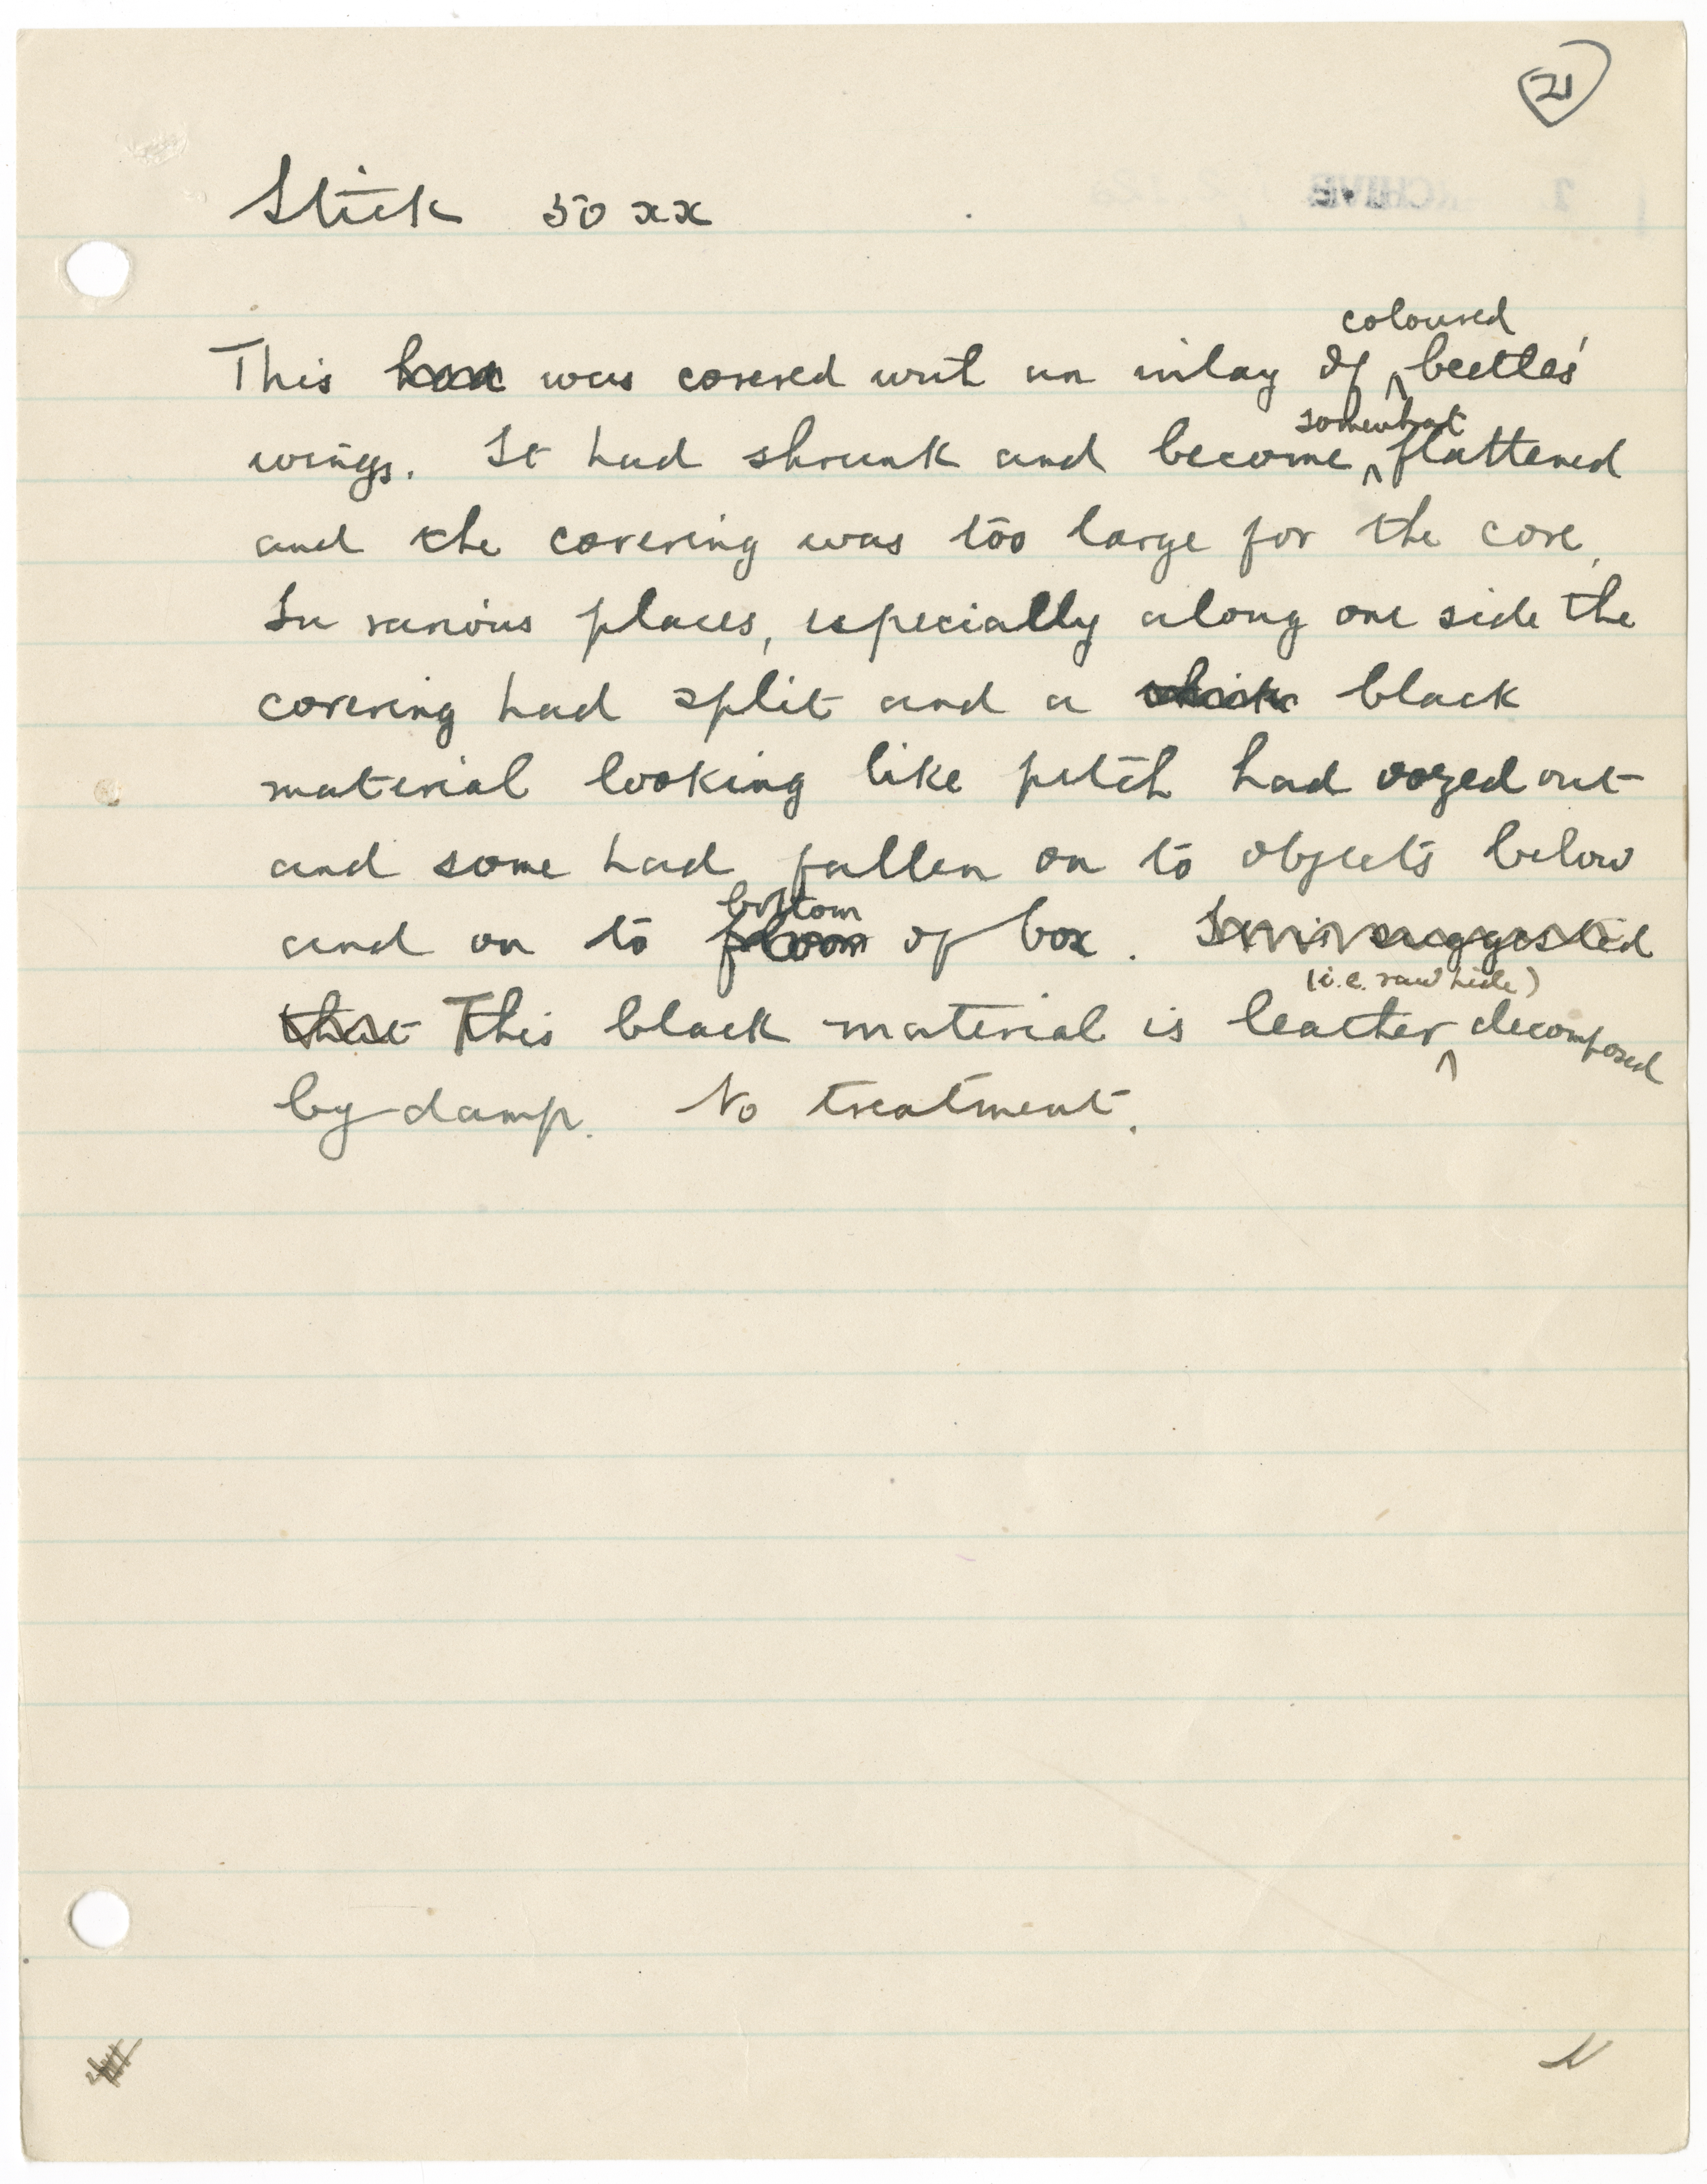 21
Stick 50 xx
This was covered wit an inlay of coloured beetles'
wings. It had shrunk and become somewhat flattened
and the covering was too large for the core.
In various places, especially along one side the
covering had split and a black
material looking like pitch had oozed out
and some had fallen on to objects below
and on to bottom of box. suggested
that This black material is leather (i.e. raw hide) decomposed
by damp. No treatment.